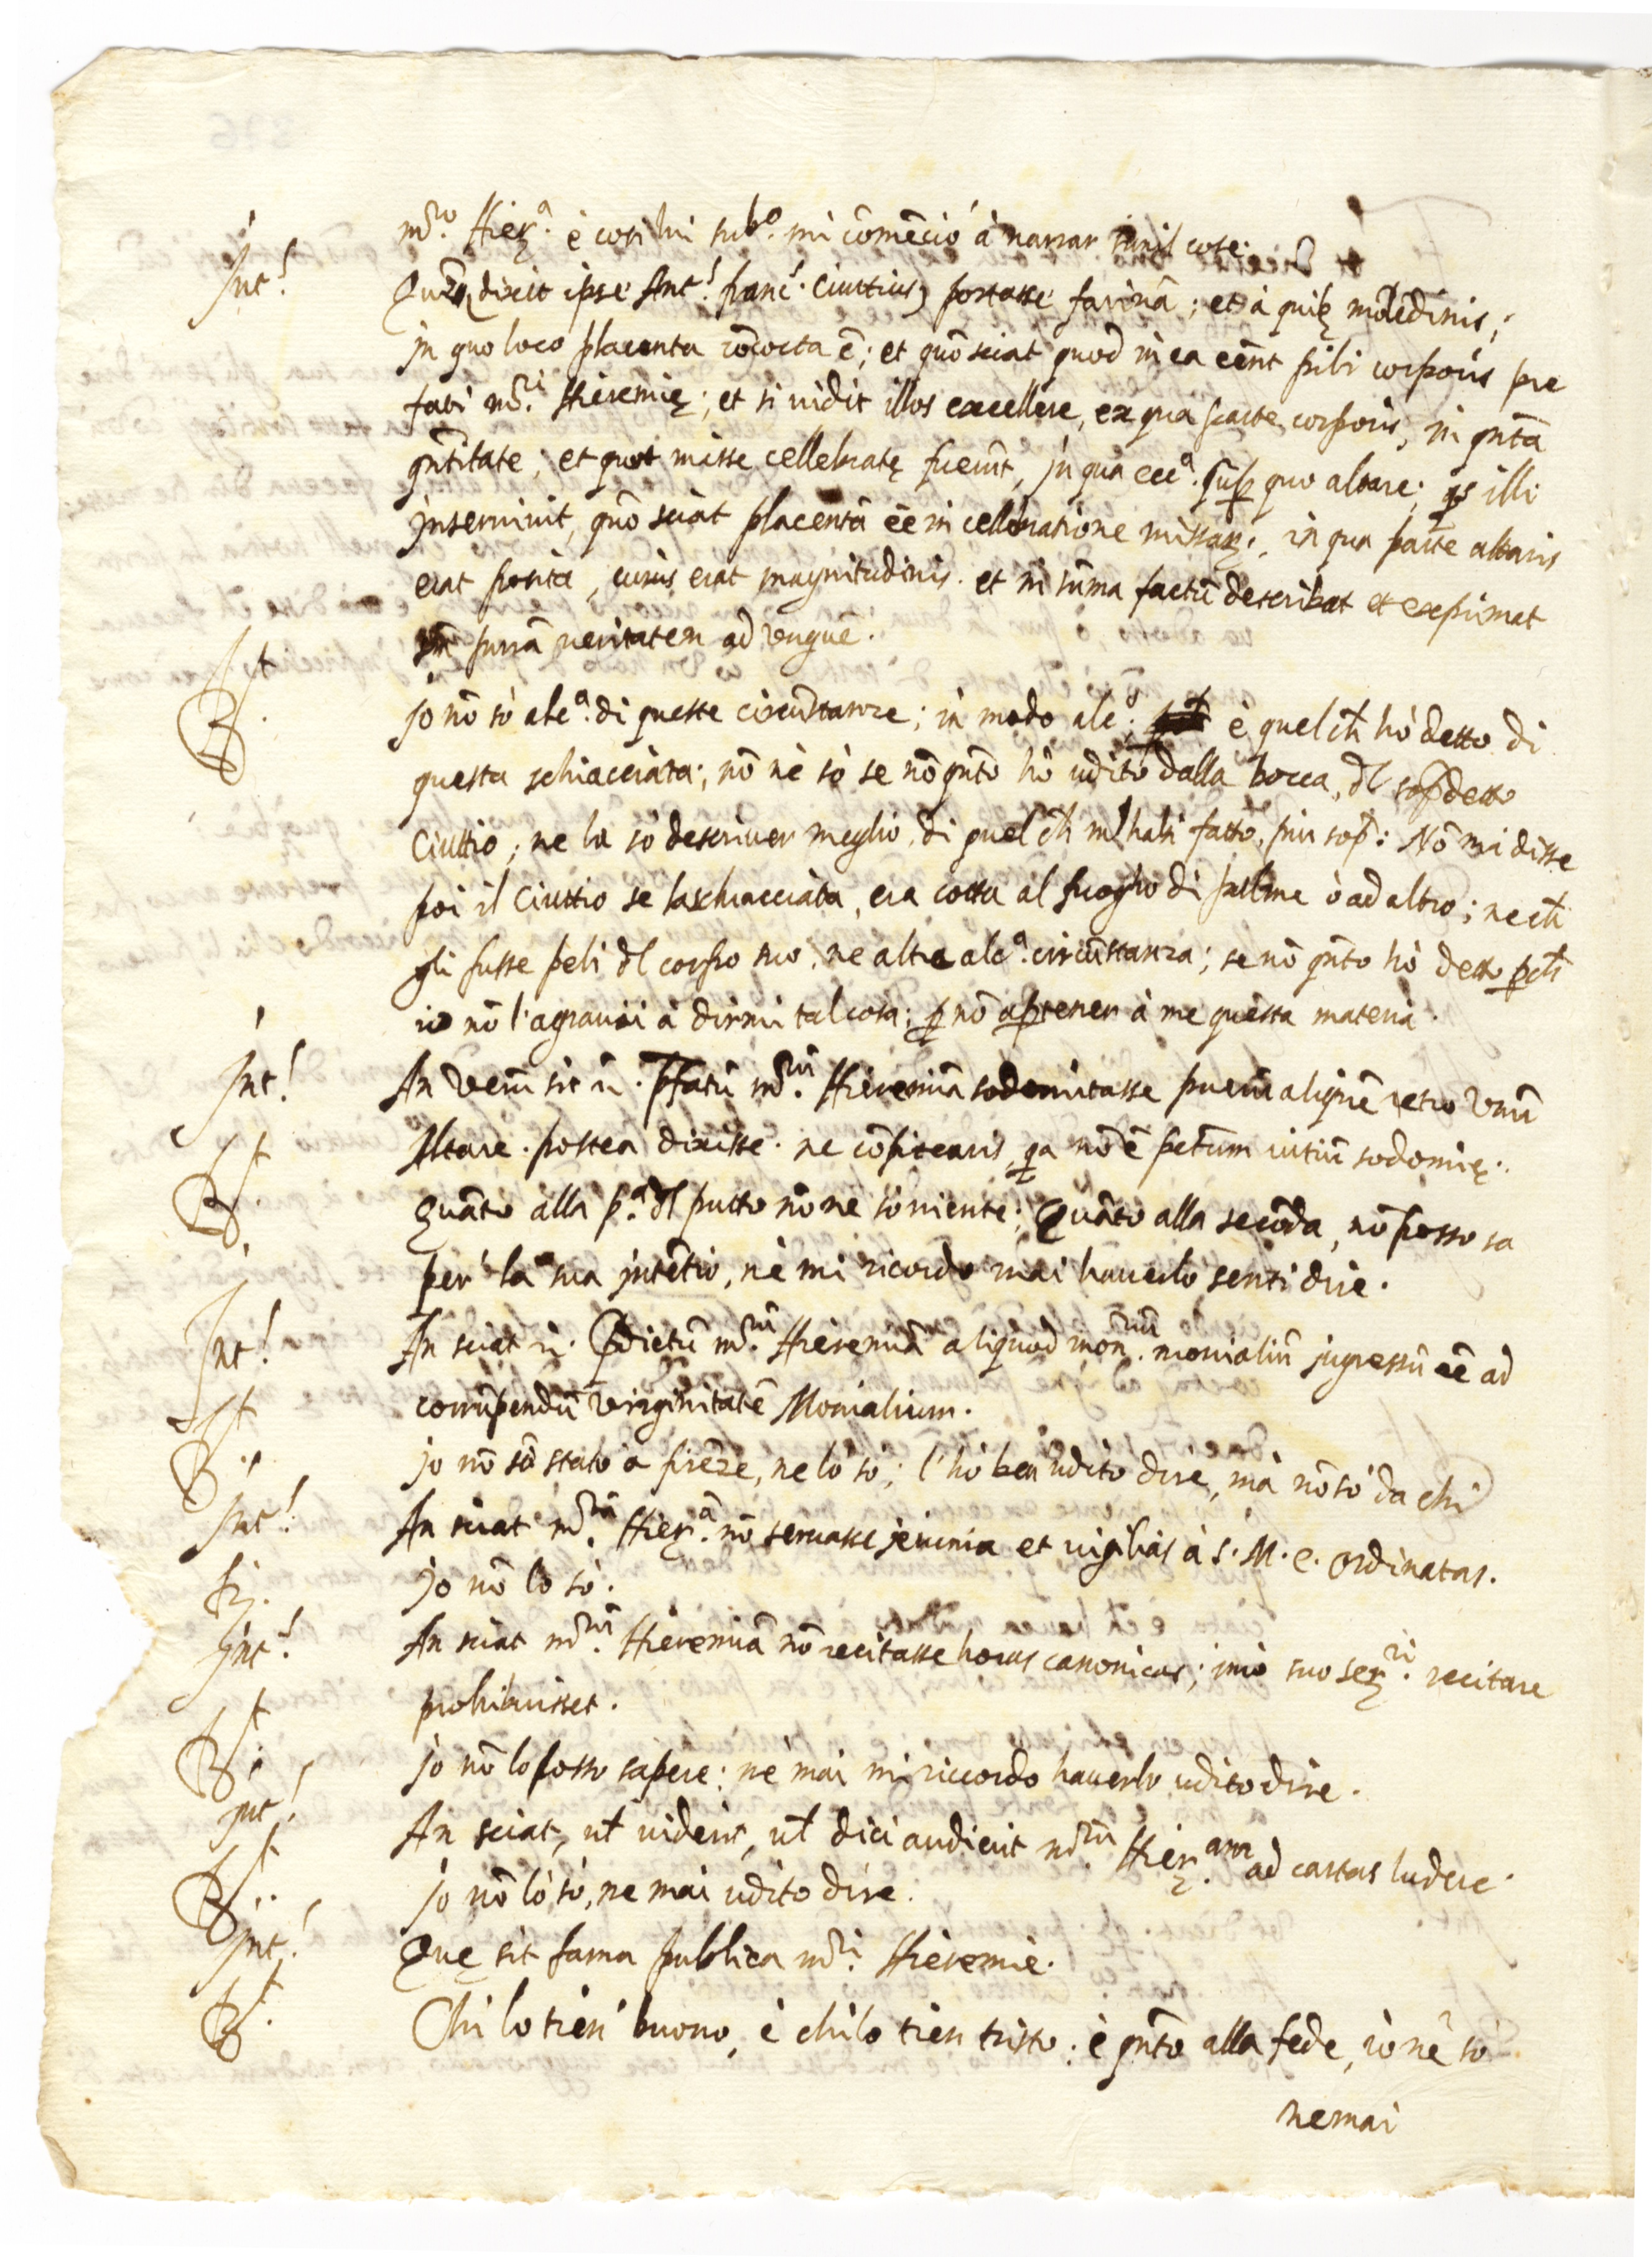 m.ro Hier.a è così lui sub.o mi cōmēciò à narrar simil cose.
Int.s dixit ipse Int.s franc.s Ciuttius portasse farinā; et à quibus moledinis;
in quo loco placenta cōcocta ē; et quō sciat quod in ea eēnt pili corporis pre
fati m.ri Hieremię; et si vidit illos excellere, ex qua parte corporis, in qnta
qntitate; et quot misse cellebratę fuerūt, in qua ecc.a sup quo altare; qs illi
inserviuit, quō sciat placentā eē in cellebratione missar., in qua parte altaris
erat posita, cuius erat magnitudinis. et in suma factū describat et exprimat
purā veritatem ad unguē.
R.t Jo nō sò alc.a di queste circūstanze; in modo alc.o è quel ch hò detto di
questa schiacciata; nō nè sò se nō qnto hò udito dalla bocca, dl sopdetto
Ciuttio; ne la sò descriuer meglio, di quel ch m'habi fatto, piu sop: Nō mi disse
poi il Ciuttio se la schiacciata, era cotta al fuogho di palme ò ad altro; ne ch
gli fusse peli dl corpo suo. ne altra alc.a circūstanza; se nō qnto hò detto pch
io nō l'agrauai à dirmi tal cosa; p nō aptener à me questa materia.
Int.s An verū sit Pfatū m.rū Hieremiā sodomitasse puerū aliquē retro unū
Altare. postea dixisse. ne cōfitearis, qa nō ē petūm vitiū sodomię.
R.t Quāto alla p.a dl putto nō ne sò niente; Quāto alla secōda, nō posso sa
per la sua intētio, nè mi ricordo mai hauerlo senti dire.
Int.s An sciat Pdictū m.rū Hieremiā aliquod mon.riū monialiū ingressū eē ad
corrūpendū virginitatē Monialium.
R.t Jo nō sō stato a firēze, ne lò sò; l'hò ben udito dire, mà nō sò da chi
Int.s An sciat m.rū Hier.ā nō seruasse jeiunia et vigilias à S. M. E. ordinatas.
R. Jo nō lo sò.
Int.s An sciat m.rū Hieremiā nō recitasse horas canonicas; imò suo ser.ri recitare
prohibuisset.
R.t Jo nō lo posso sapere; nè mai mi riccordo hauerlo udito dire.
Int.s An sciat, ut viderit, ut dici audierit m.rū Hier.am ad cartas ludere.
R.t Jo nō lò sò, ne mai udito dire.
Int.s Quę sit fama publica m.ri Hieremie.
R.t Chi lo tien buono, è chi lo tien tristo; è qnto alla fede, iò nè sò
ne mai